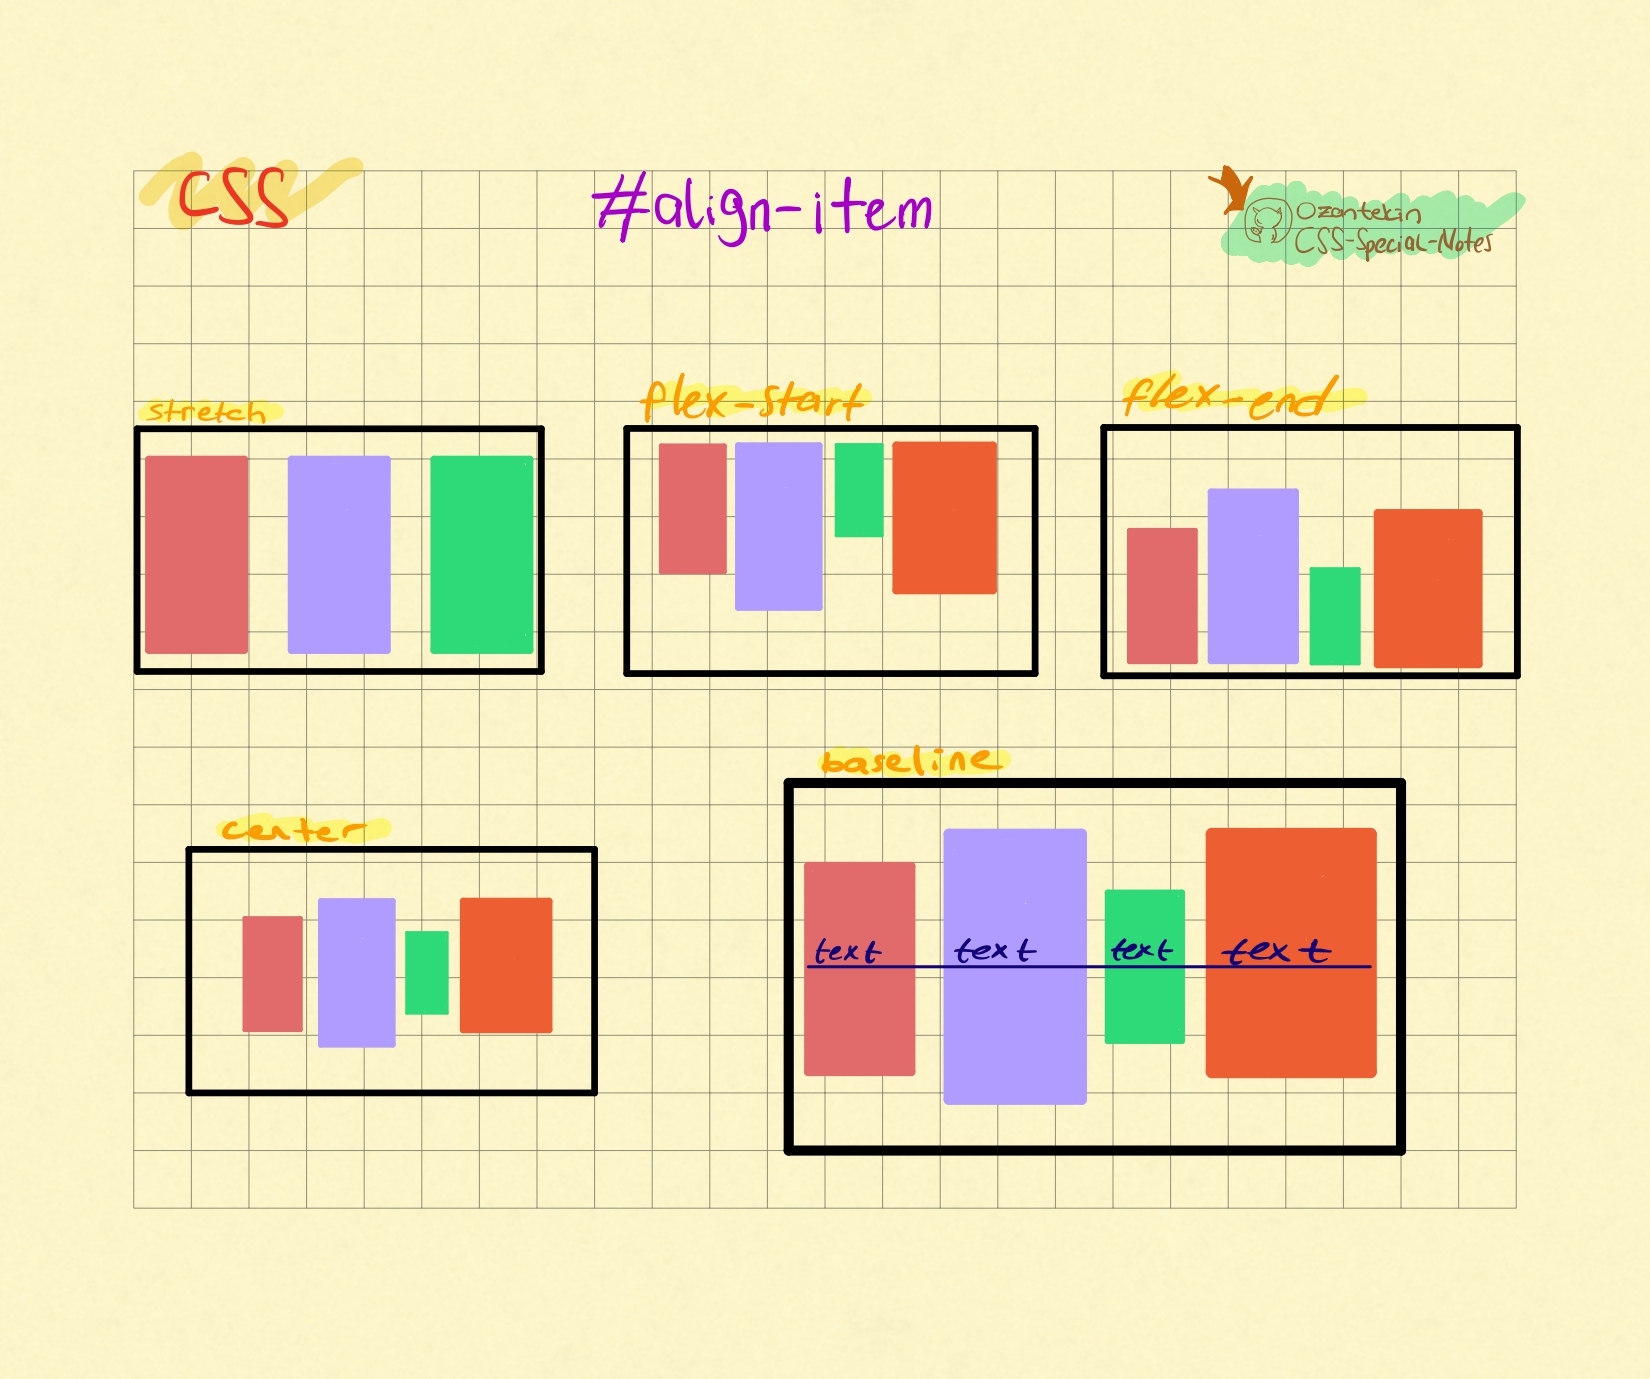 CSS
#align-item
Ozantekin
CSS-Special-Notes
stretch
flex-start
flex-end
center
baseline
text text text text